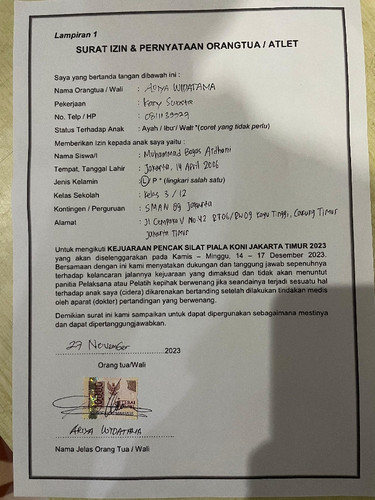 Lampiran 1
SURAT IZIN & PERNYATAAN ORANGTUA / ATLET
Saya yang bertanda tangan dibawah ini :
Nama Orangtua / Wali : ARIYA WIDATAMA
Pekerjaan : Kary Swasta
No. Telp / HP :
Status Terhadap Anak : Ayah / Ibu / Wali *(coret yang tidak perlu)
Memberikan izin kepada anak saya yaitu :
Nama Siswa/i : Muhammad Bagas
Tempat, Tanggal Lahir : Jakarta, 14 April 2006
Jenis Kelamin : L / P * (lingkari salah satu)
Kelas Sekolah : Kelas 3 / 12
Kontingen / Perguruan : SMAN 89 Jakarta
Alamat : Jl Cempaka V No 42 RT06/RW09 Kayu Tinggi, Cakung Timur
Jakarta Timur
Untuk mengikuti KEJUARAAN PENCAK SILAT PIALA KONI JAKARTA TIMUR 2023
yang akan diselenggarakan pada Kamis – Minggu, 14 – 17 Desember 2023.
Bersamaan dengan ini kami menyatakan dukungan dan tanggung jawab sepenuhnya
terhadap kelancaran jalannya kejuaraan yang dimaksud dan tidak akan menuntut
panitia Pelaksana atau Pelatih kepihak berwenang jika seandainya terjadi sesuatu hal
terhadap anak saya (cidera) dikarenakan bertanding setelah dilakukan tindakan medis
oleh aparat (dokter) pertandingan yang berwenang.
Demikian surat ini kami sampaikan untuk dapat dipergunakan sebagaimana mestinya
dan dapat dipertanggungjawabkan.
27 November 2023
Orang tua/Wali
ARIYA WIDATAMA
Nama Jelas Orang Tua / Wali